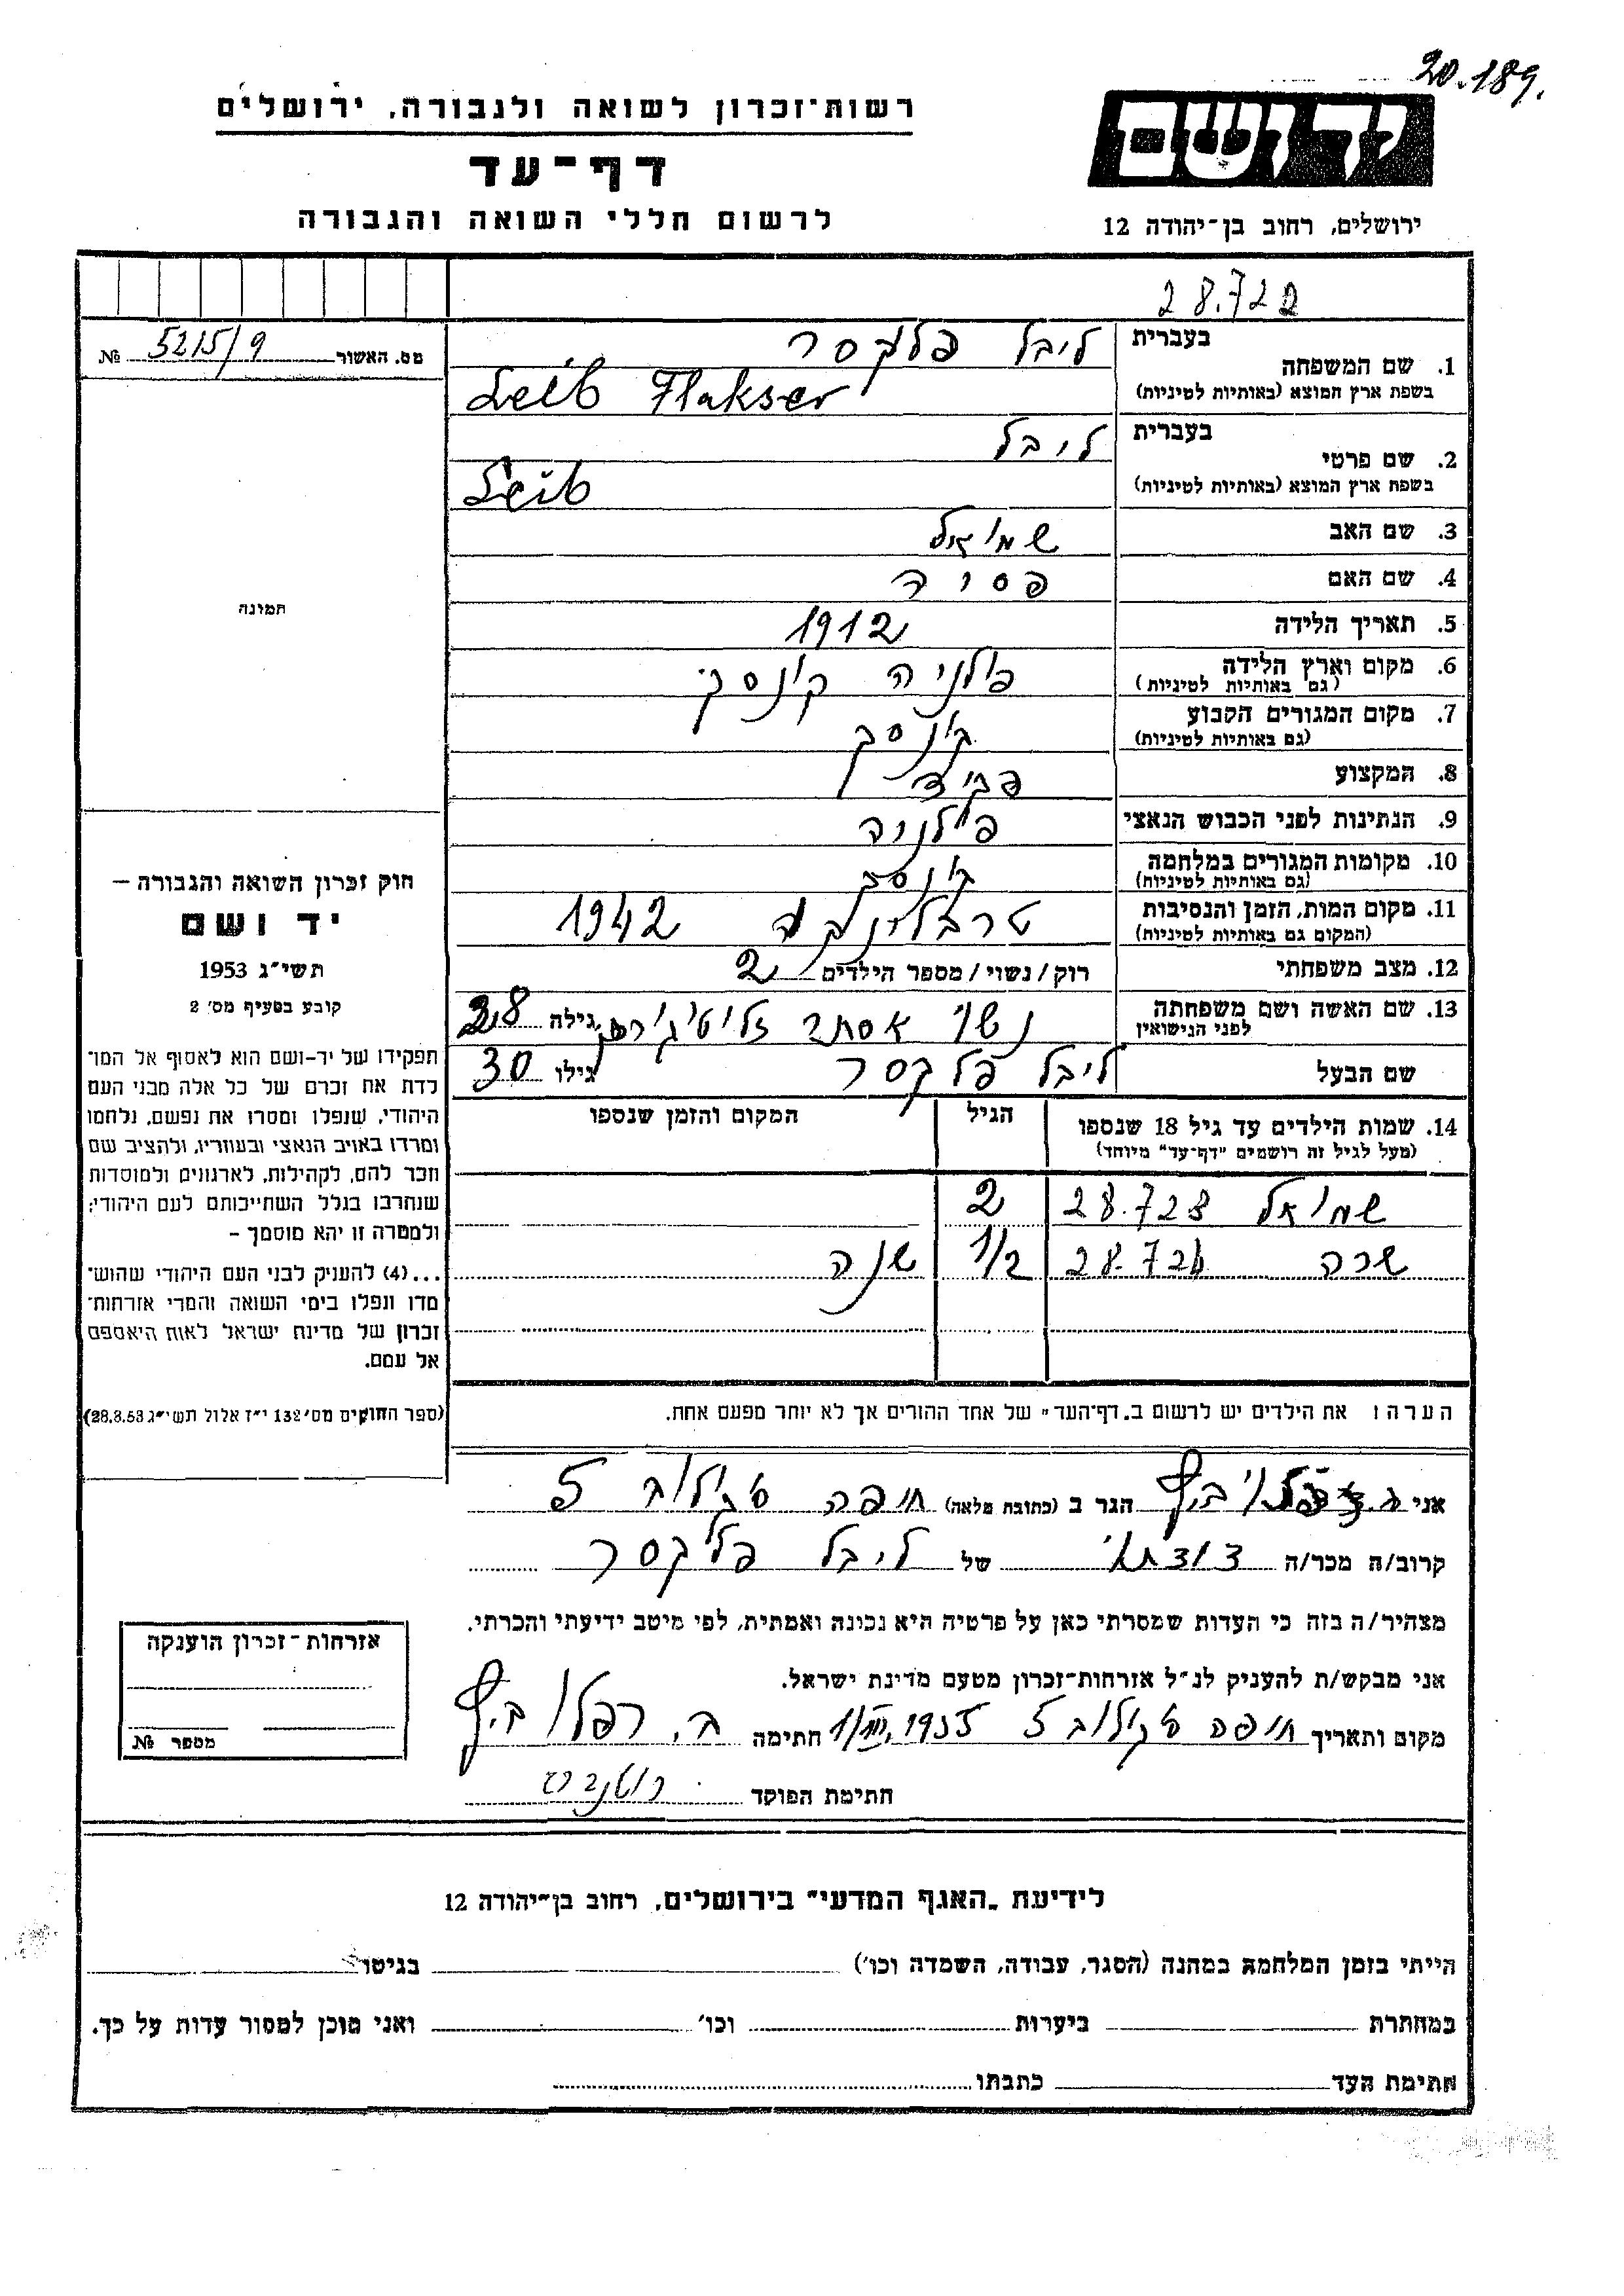 20.189.
רשות-זכרון לשואה ולגבורה, ירושלים
דף-עד
לרשום חללי השואה והגבורה
יד ושם
ירושלים, רחוב בן-יהודה 12
28.722
מס. האשור 5215/9 №
1. שם המשפחה
בעברית ליבל פלקסר
בשפת ארץ המוצא (באותיות לטיניות) Leib Flakser
2. שם פרטי
בעברית ליבל
בשפת ארץ המוצא (באותיות לטיניות) Leib
3. שם האב שמואל
4. שם האם פסיה
5. תאריך הלידה 1912
6. מקום וארץ הלידה פולניה קונסק
(גם באותיות לטיניות)
7. מקום המגורים הקבוע קונסק
(גם באותיות לטיניות)
8. המקצוע
9. הנתינות לפני הכבוש הנאצי פולניה
10. מקומות המגורים במלחמה קונסק
(גם באותיות לטיניות)
11. מקום המות, הזמן והנסיבות טרבלינקה 1942
(המקום גם באותיות לטיניות)
12. מצב משפחתי רוק/נשוי/מספר הילדים 2
13. שם האשה ושם משפחתה נשוי אסתר גילה 28
לפני הנישואין
שם הבעל ליבל פלקסר גילו 30
14. שמות הילדים עד גיל 18 שנספו הגיל המקום והזמן שנספו
(מעל לגיל זה רושמים "דף-עד" מיוחד)
שמואל 28.723 2
שרה 28.724 1/2 שנה
הערה: את הילדים יש לרשום ב„דף-העד" של אחד ההורים אך לא יותר מפעם אחת.
תמונה
חוק זכרון השואה והגבורה –
יד ושם
תשי"ג 1953
קובע בסעיף מס' 2
תפקידו של יד-ושם הוא לאסוף אל המו־
לדת את זכרם של כל אלה מבני העם
היהודי, שנפלו ומסרו את נפשם, נלחמו
ומרדו באויב הנאצי ובעוזריו, ולהציב שם
וזכר להם, לקהילות, לארגונים ולמוסדות
שנחרבו בגלל השתייכותם לעם היהודי;
ולמטרה זו יהא מוסמך –
...(4) להעניק לבני העם היהודי שהוש־
מדו ונפלו בימי השואה והמרי אזרחות־
זכרון של מדינת ישראל לאות היאספם
אל עמם.
(ספר החוקים מס' 132 י"ז אלול תשי"ג 28.8.53)
אני הגר ב (כתובת מלאה) חיפה סקולוב 5
קרוב/ה מכר/ה של ליבל פלקסר
מצהיר/ה בזה כי העדות שמסרתי כאן על פרטיה היא נכונה ואמתית, לפי מיטב ידיעתי והכרתי.
אני מבקש/ת להעניק לנ"ל אזרחות-זכרון מטעם מדינת ישראל.
מקום ותאריך חיפה סקולוב 5 1/VIII.1955 חתימה ב. רפלוביץ
חתימת הפוקד
אזרחות-זכרון הוענקה
מספר №
לידיעת „האגף המדעי" בירושלים, רחוב בן-יהודה 12
הייתי בזמן המלחמה במחנה (הסגר, עבודה, השמדה וכו') בגיטו
במחתרת ביערות וכו' ואני מוכן למסור עדות על כך.
חתימת העד כתבתו